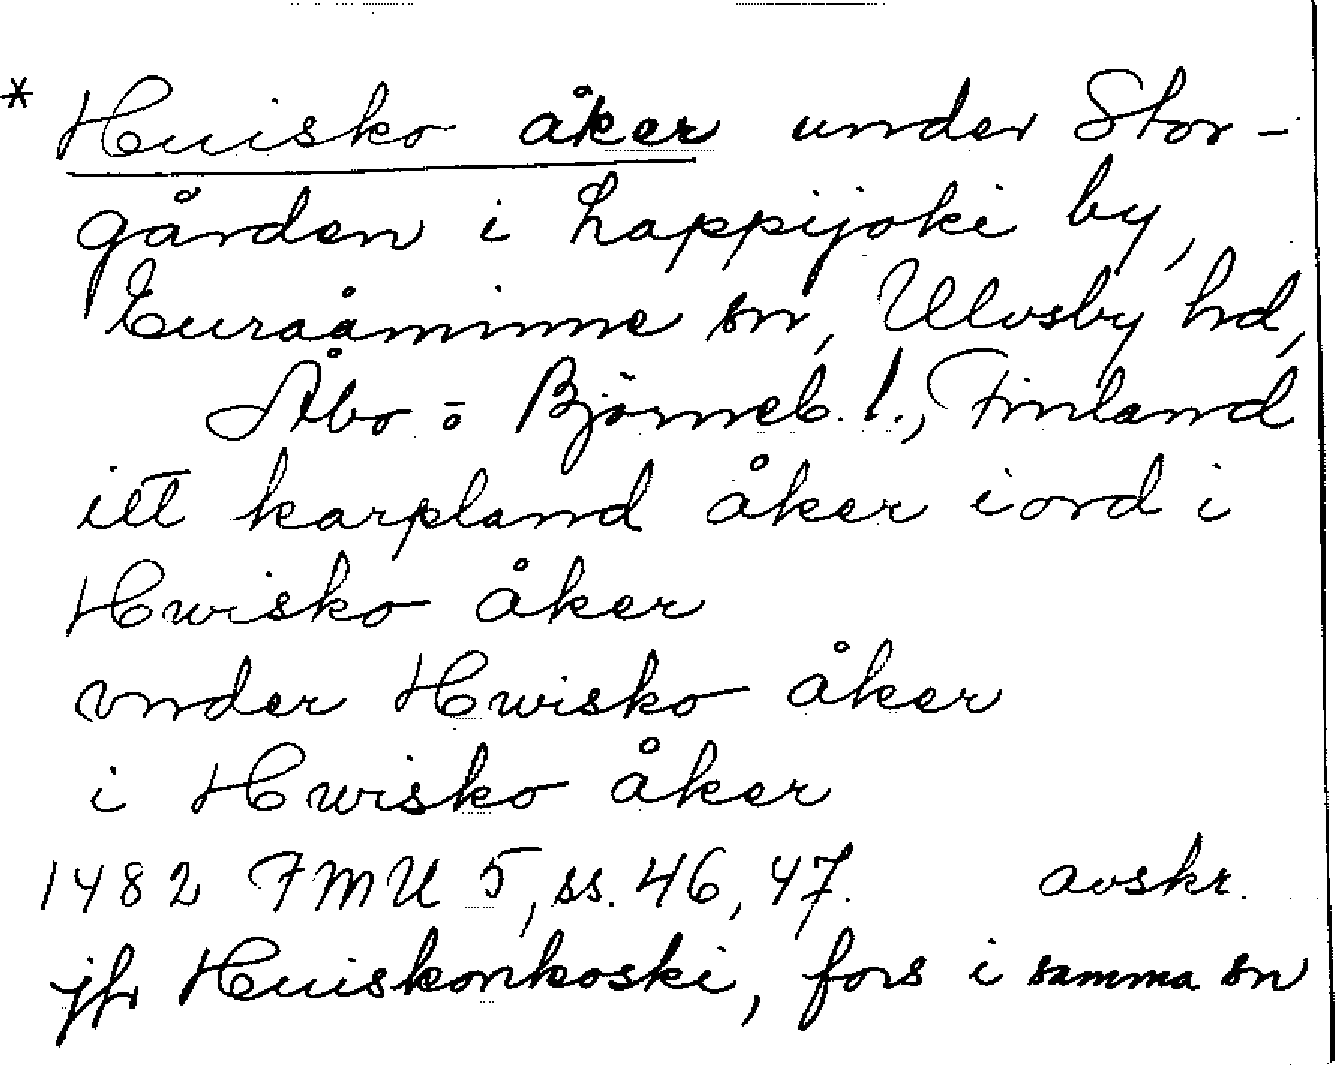 * Huisko åker under Stor-
gården i Lappijoki by,
Euraåminne sn, Ulvsby hd,
Åbo-o Björneb. l., Finland
itt karpland åker iord i
Hwisko åker
vnder Hwisko åker
i Hwisko åker
1482 FMU 5, ss. 46, 47. avskr.
jfr Huiskonkoski, fors i samma sn